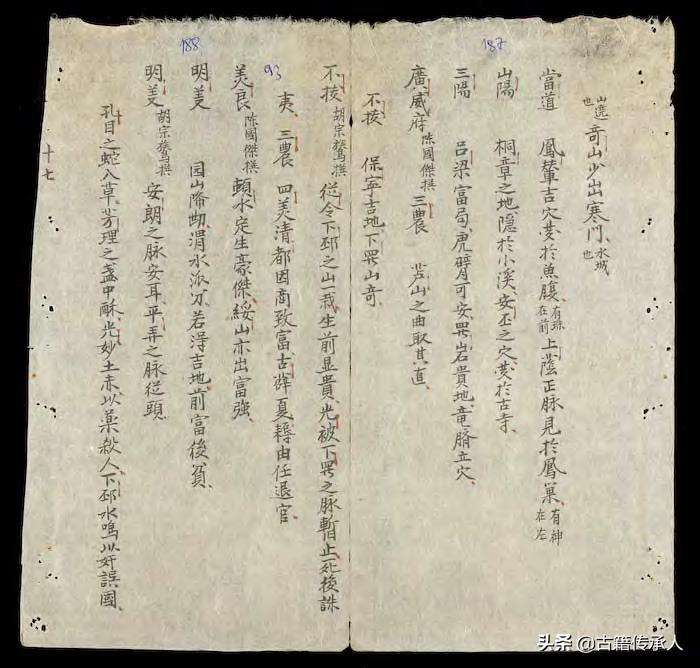 187
山逸也 奇山少出寒門、水城也
當道 鳳輦吉穴、葬於魚腹、有珠在前 上蔭正脉、見於鳳巢、有神在左
山陽 桐章之地、隱於小溪、安丕之穴、葬於古寺、
三陽 呂梁富局、虎臂可安、畢岩貴地、竜臍立穴、
廣威府 陳國傑撰 三農 芒山之曲取其直、
不拔 保寧吉地下畢山奇、
188
93
不拔 胡宗鷟撰 從令下邳之山一栽、生前显貴、光被下畢之脉暫止、死後誅
夷、 三農 四美清都因商致富、古薛夏耨由任退官、
美良 陳國傑撰 頓水定生豪傑、綏山亦出富強、
明美 因山降勘、渭水派分、若淂吉地、前富後貧、
明美 胡宗鷟撰 安朗之脉安耳、平弄之脉從頭、
孔目之蛇入草、芳理之盞中酥、光妙土赤以藥殺人、下邳水鳴以奸誤國、
十七
头条 @古籍传承人